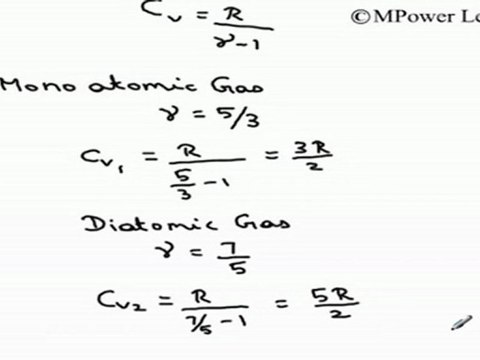 Cv = R / γ-1
©MPower Le
Mono atomic Gas
γ = 5/3
Cv₁ = R / (5/3 - 1) = 3R/2
Diatomic Gas
γ = 7/5
Cv₂ = R / (7/5 - 1) = 5R/2